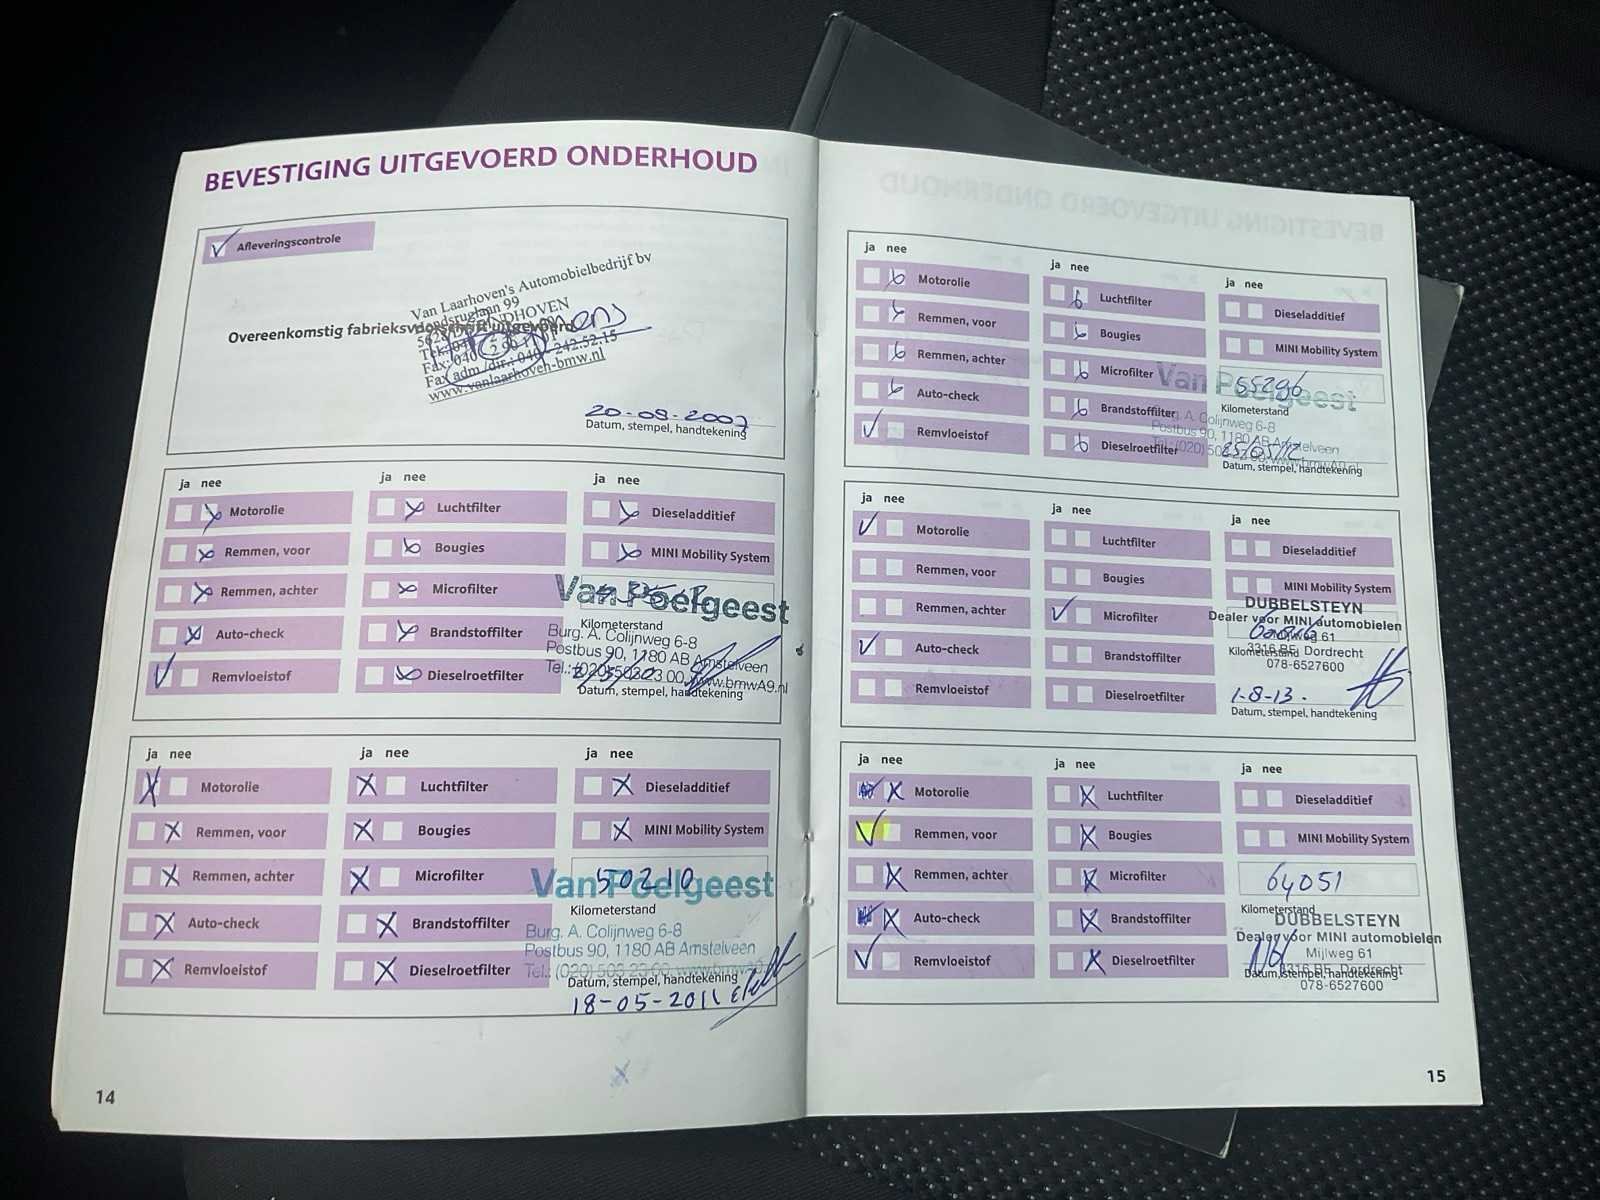 BEVESTIGING UITGEVOERD ONDERHOUD
Afleveringscontrole
Van Laarhoven's Automobielbedrijf bv
Overeenkomstig fabrieksvoorschrift uitgevoerd
Fax adm./dir.: 040 - 242.52.15
www.vanlaarhoven-bmw.nl
20-09-2007
Datum, stempel, handtekening
ja nee
Motorolie
Remmen, voor
Remmen, achter
Auto-check
Remvloeistof
ja nee
Luchtfilter
Bougies
Microfilter
Brandstoffilter
Dieselroetfilter
ja nee
Dieseladditief
MINI Mobility System
Van Poelgeest
Kilometerstand
Burg. A. Colijnweg 6-8
Postbus 90, 1180 AB Amstelveen
Tel.: (020) 503 23 00, www.bmwA9.nl
Datum, stempel, handtekening
ja nee
Motorolie
Remmen, voor
Remmen, achter
Auto-check
Remvloeistof
ja nee
Luchtfilter
Bougies
Microfilter
Brandstoffilter
Dieselroetfilter
ja nee
Dieseladditief
MINI Mobility System
50210
Van Poelgeest
Kilometerstand
Burg. A. Colijnweg 6-8
Postbus 90, 1180 AB Amstelveen
Tel.: (020) 503 23 00, www.bmwA9
Datum, stempel, handtekening
18-05-2011
14
ja nee
Motorolie
Remmen, voor
Remmen, achter
Auto-check
Remvloeistof
ja nee
Luchtfilter
Bougies
Microfilter
Brandstoffilter
Dieselroetfilter
ja nee
Dieseladditief
MINI Mobility System
55296
Van Poelgeest
Kilometerstand
Burg. A. Colijnweg 6-8
Postbus 90, 1180 AB Amstelveen
25/05/12
Datum, stempel, handtekening
ja nee
Motorolie
Remmen, voor
Remmen, achter
Auto-check
Remvloeistof
ja nee
Luchtfilter
Bougies
Microfilter
Brandstoffilter
Dieselroetfilter
ja nee
Dieseladditief
MINI Mobility System
DUBBELSTEYN
Dealer voor MINI automobielen
Mijlweg 61
3316 BE Dordrecht
Kilometerstand
078-6527600
1-8-13.
Datum, stempel, handtekening
ja nee
Motorolie
Remmen, voor
Remmen, achter
Auto-check
Remvloeistof
ja nee
Luchtfilter
Bougies
Microfilter
Brandstoffilter
Dieselroetfilter
ja nee
Dieseladditief
MINI Mobility System
64051
Kilometerstand
DUBBELSTEYN
Dealer voor MINI automobielen
Mijlweg 61
3316 BE Dordrecht
Datum, stempel, handtekening
078-6527600
15